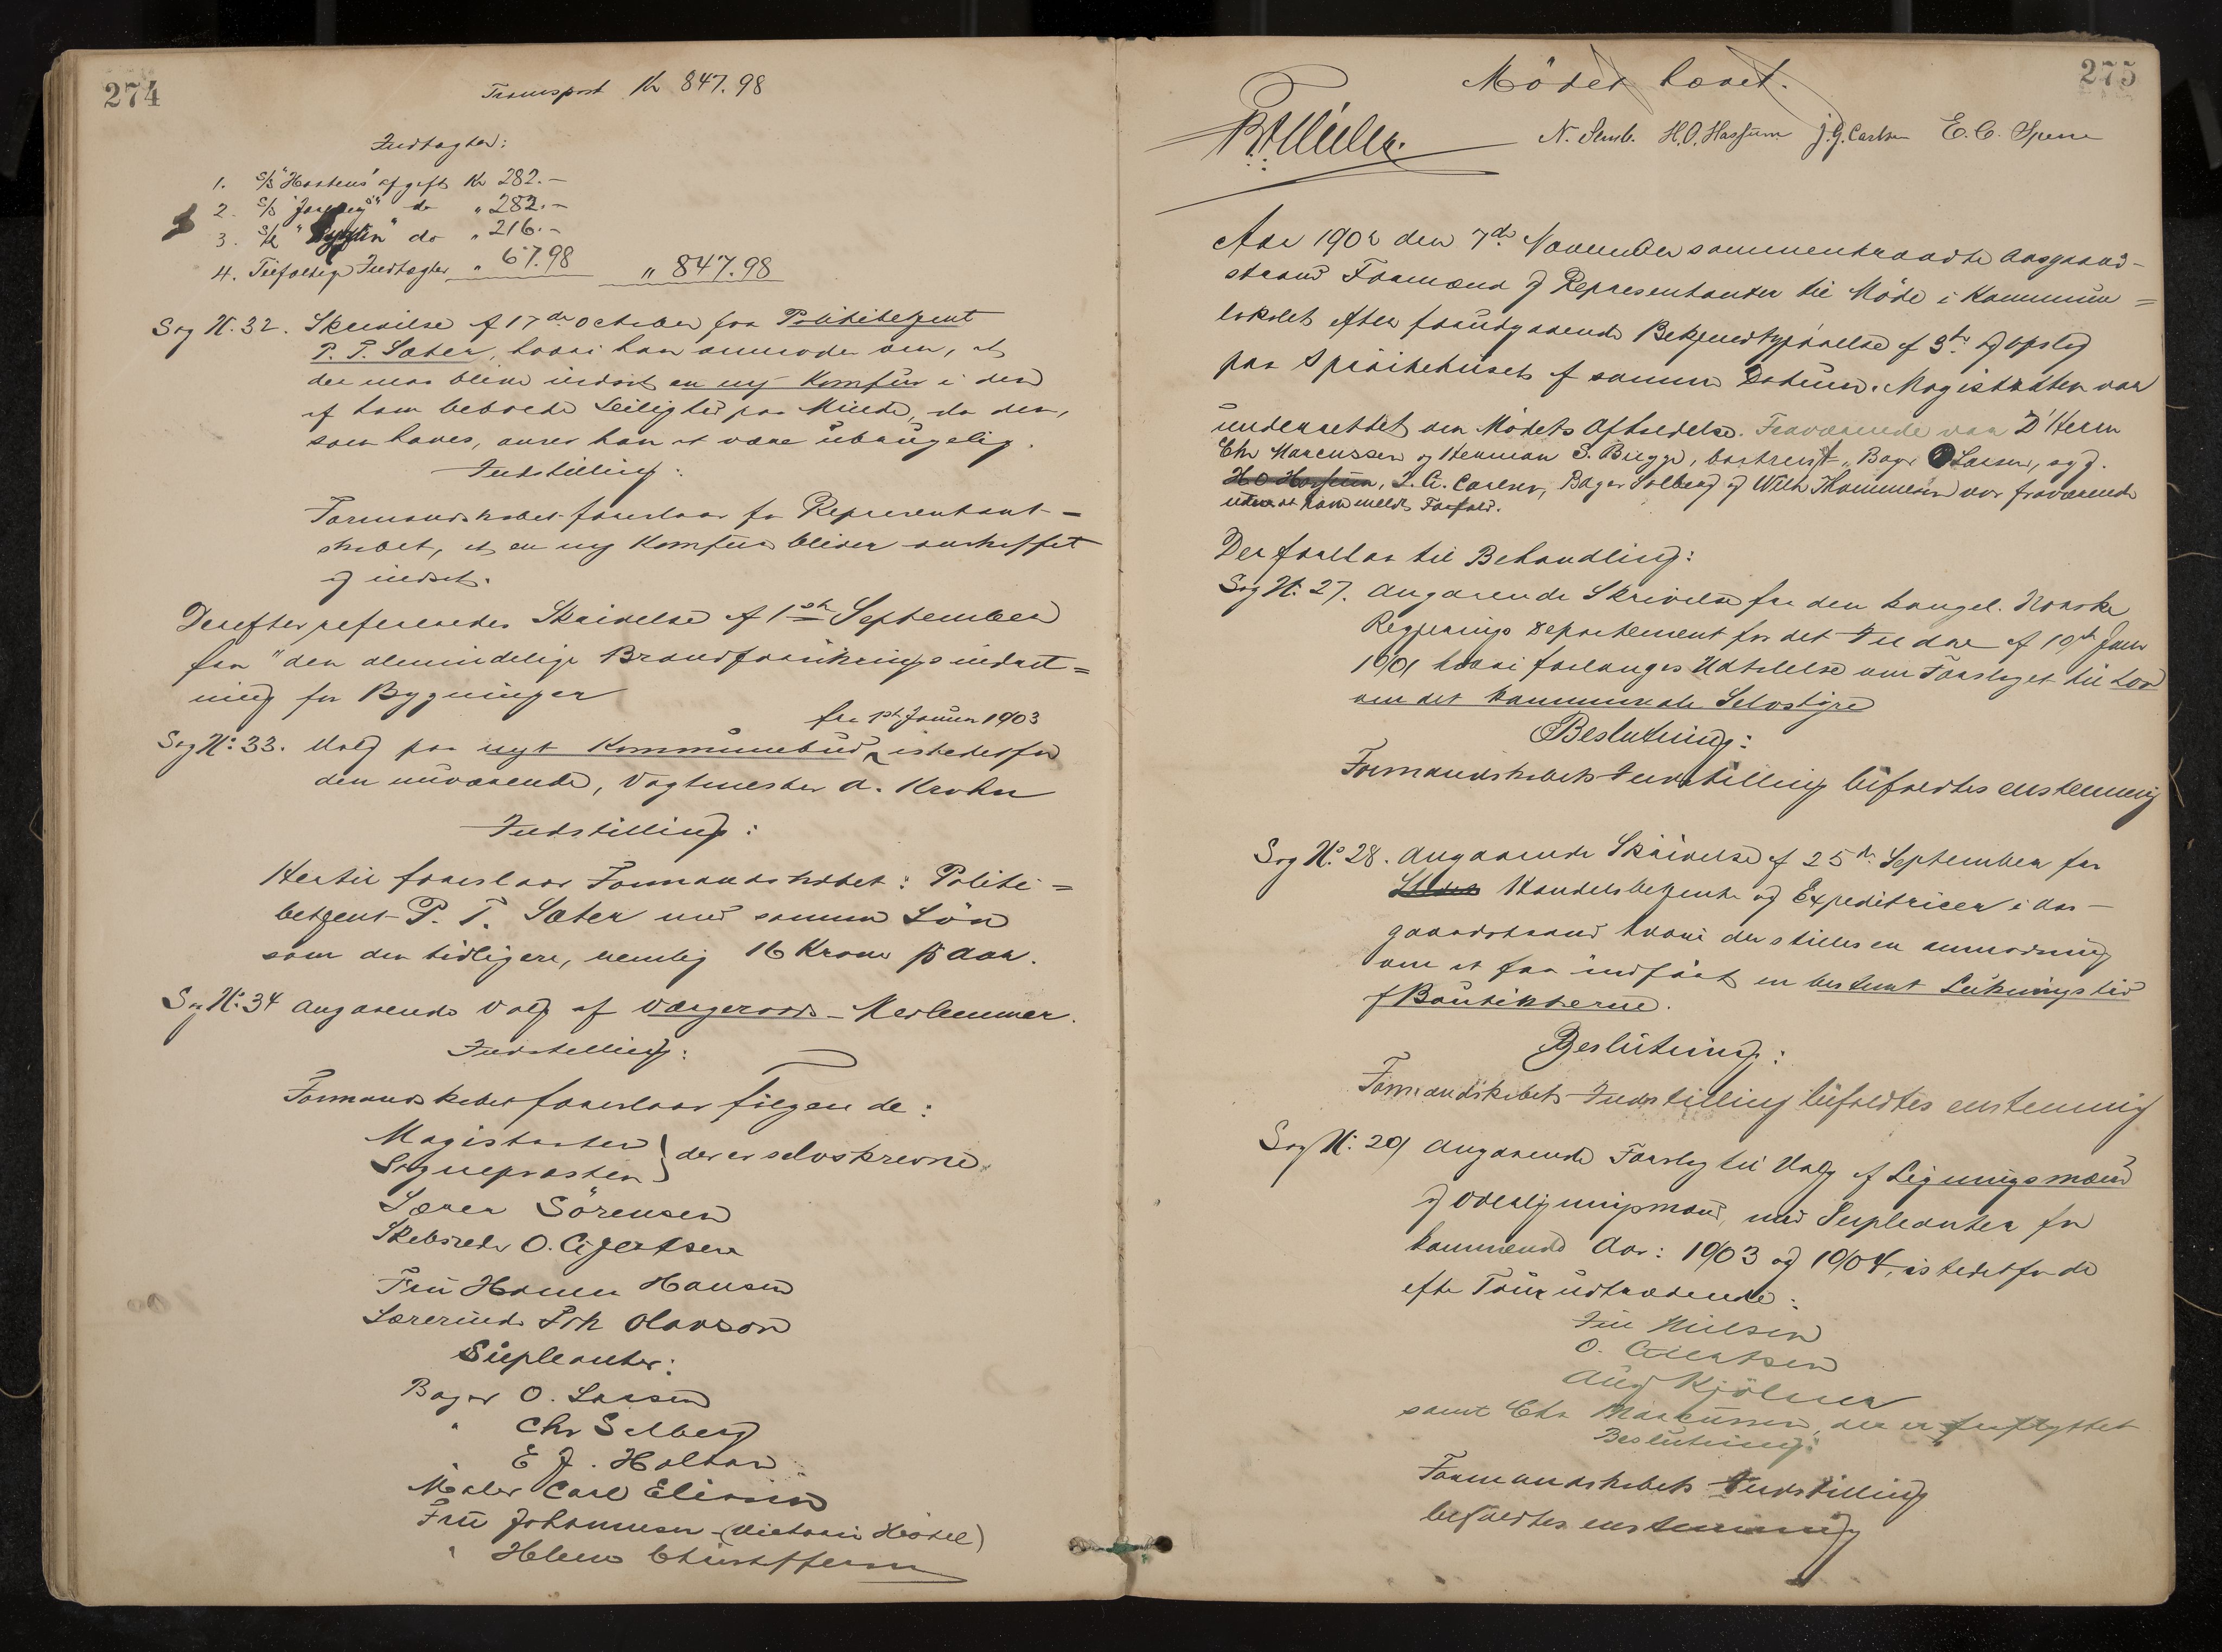 274
Transport Kr 847.98
Indtægter:
1. S/S "Horstens" afgift Kr 282.-
2. S/S do " 282.-
3. do " 216.-
4. Tilfældige Indtægter " 67.98 " 847.98
Sag No. 32. Skrivelse af 17de October fra Politibetjent
P. T. Sæter, hvori han anmoder om, at
der maa blive indsat en ny Komfur i den
af ham beboede Leilighed paa Minde, da den,
som haves, anser han at være übrugelig.
Indstilling:
Formandskabet foreslaar for Representant=
skabet, at en ny Komfur bliver anskaffet
og indsat.
Derefter refereredes Skrivelse af 1ste September
fra "den almindelige Brandforsikringsindret=
ning for Bygninger
fra 1ste Januar 1903
Sag No. 33. Valg paa nyt Kommunebud istedetfor
den nuværende, Vagtmester A. Krohn
Indstilling:
Hertil foreslaar Formandskabet: Politi=
betjent P. T. Sæter med samme Lön
som den tidligere, nemlig 16 Kroner pr Aar.
Sag No. 34 angaaende Valg af Værgeraads-Medlemmer.
Indstilling:
Formandskabet foreslaar fölgende:
Magistraten } der er selvskrevne.
Sognepresten }
Lærer Sörensen
Skibsreder O. Gjertsen
Fru Hanna Hansen
Lærerinde Olavson
Süpleanter:
Bager O. Larsen
" Chr Solberg
" E J. Holtan
Maler Carl
Fru Johannesen (Victoria Hotel)
" Helene Christoffersen
275
Mödet hævet.
N. H.O. Hassum J.G. Carlsen E. C.
Aar 1902 den 7de November sammentraadte Aasgaard-
strands Formænd og Representanter til Möde i Kommune=
lokalet efter forudgaaende Bekjendtgjörelse af 3die og opslag
paa Spröitehuset af samme Datum. Magistraten var
underrettet om Mödets Afholdelse. Fraværende var D'Herrer
Chr Marcussen og Herman S. Bugge, bortreist, Bager O Larsen, syg.
H O Hassum, Carlsen, Bager Solberg og Wilh Thommesen var fraværende
uden at have meldt Forfald.
Der forelaa til Behandling:
Sag No. 27. angaaende Skrivelse fra den kongel. Norske
Regjerings Departement for det Indre af 19de
1901 hvori forlanges Udtalelse om Forslaget til Lov
om det kommunale Selvstyre
Beslutning:
Formandskabets Indstilling bifaldtes enstemmig
Sag No. 28. angaaende Skrivelse af 25de September fra
Handelsbetjente og Expeditricer i Aas-
gaardstrand hvori der stilles en anmodning
om at faa indfört en bestemt Lukningstid
af Boutikkerne.
Beslutning:
Formandskabets Indstilling bifaldtes enstemmig
Sag No. 29 angaaende Forslag til Valg af Ligningsmænd
og Overligningsmænd, med Supleanter for
kommende Aar: 1903 og 1904, istedetfor de
efter Tour udtrædende:
Nielsen
O. Gjertsen
Aug Kjölner
samt Chr Marcussen, der er fraflyttet
Beslutning:
Formandskabets Indstilling
bifaldtes enstemmig